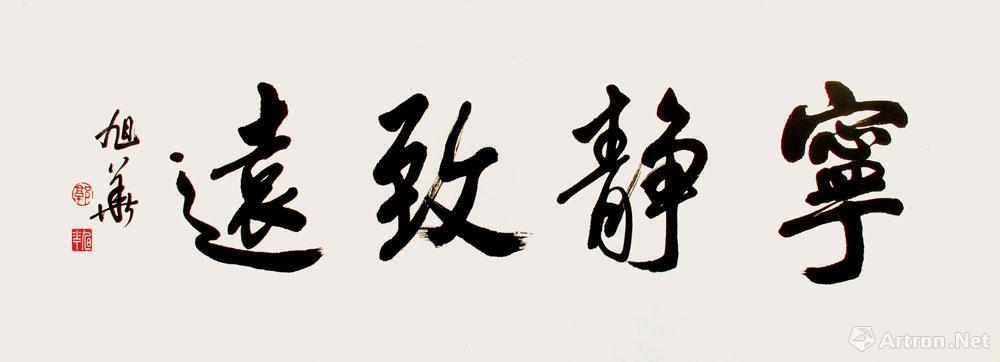 寧靜致遠
旭華
Artron.Net